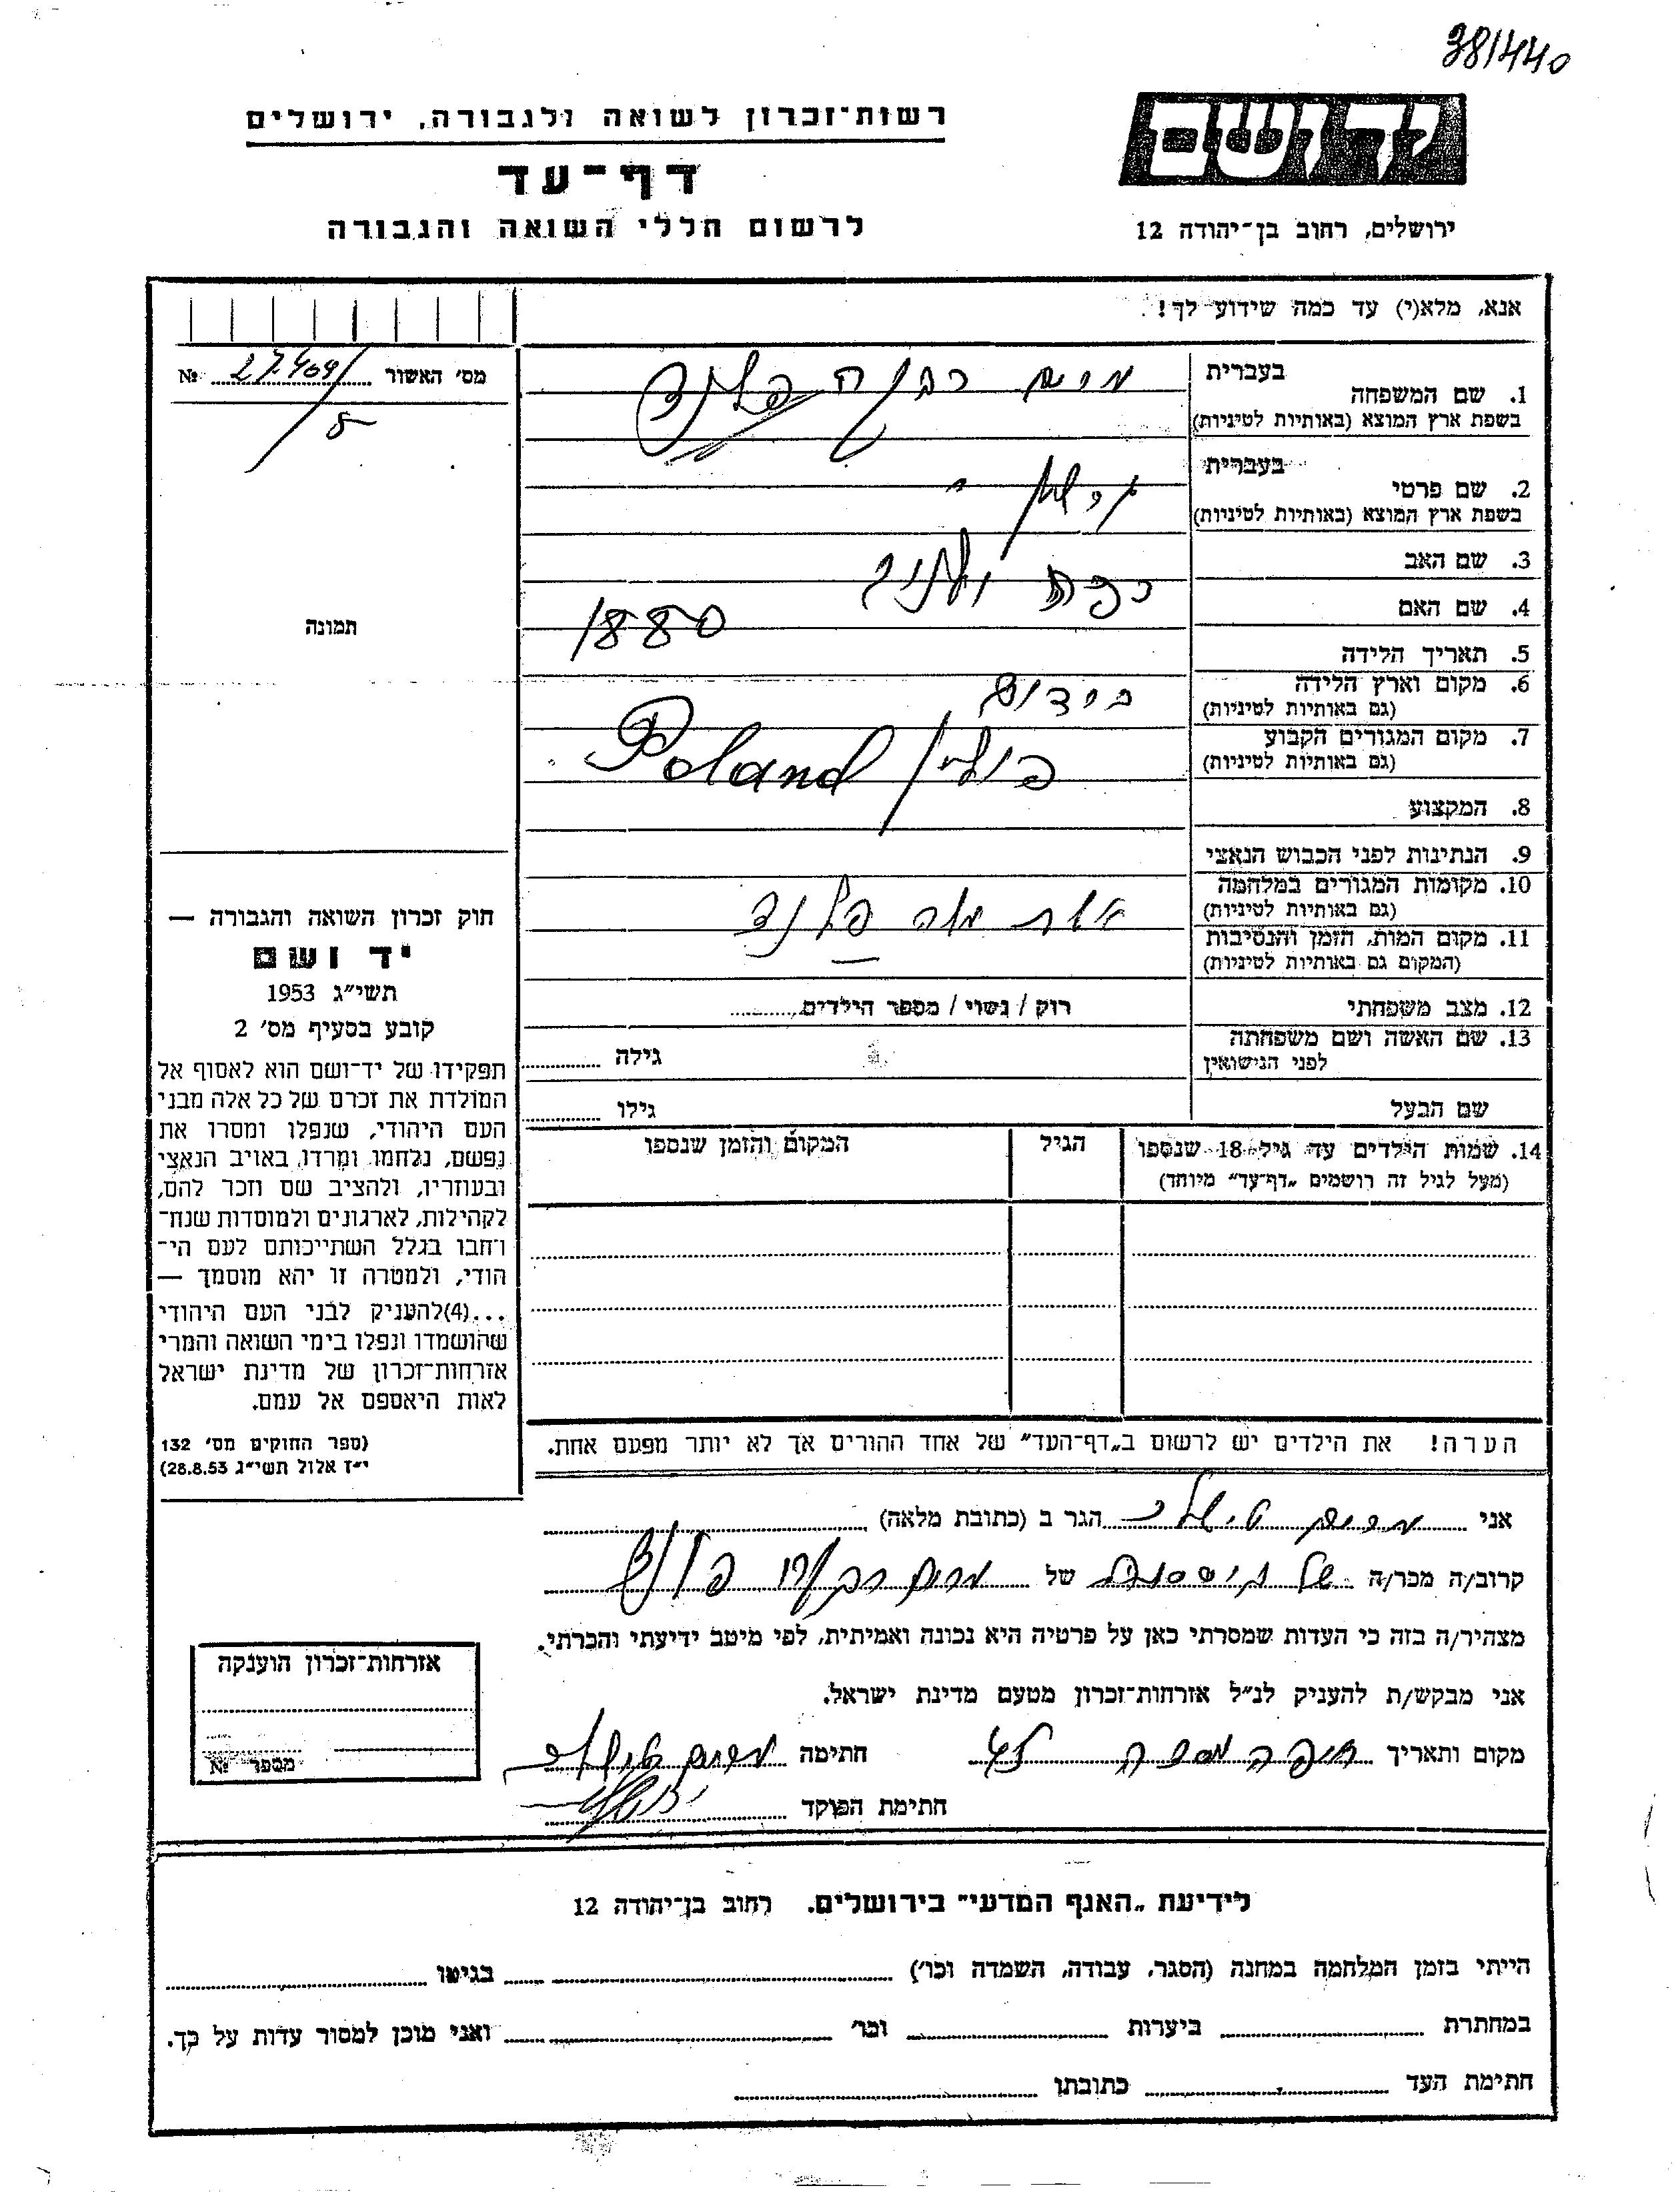 381440
יד ושם
רשות־זכרון לשואה ולגבורה, ירושלים
דף־עד
לרשום חללי השואה והגבורה
ירושלים, רחוב בן־יהודה 12
אנא, מלא(י) עד כמה שידוע לך!
מס׳ האשור 27409/ №
בעברית
1. שם המשפחה
בשפת ארץ המוצא (באותיות לטיניות)
בעברית
2. שם פרטי
בשפת ארץ המוצא (באותיות לטיניות)
3. שם האב
4. שם האם
1880
5. תאריך הלידה
6. מקום וארץ הלידה
(גם באותיות לטיניות)
7. מקום המגורים הקבוע
(גם באותיות לטיניות)
פולין Poland
8. המקצוע
9. הנתינות לפני הכבוש הנאצי
10. מקומות המגורים במלחמה
(גם באותיות לטיניות)
11. מקום המות, הזמן והנסיבות
(המקום גם באותיות לטיניות)
12. מצב משפחתי
רוק / נשוי / מספר הילדים
13. שם האשה ושם משפחתה
לפני הנישואין
גילה
שם הבעל
גילו
14. שמות הילדים עד גיל 18 שנספו
(מעל לגיל זה רושמים „דף־עד” מיוחד)
הגיל
המקום והזמן שנספו
הערה! את הילדים יש לרשום ב„דף־העד” של אחד ההורים אך לא יותר מפעם אחת.
תמונה
חוק זכרון השואה והגבורה —
יד ושם
תשי״ג 1953
קובע בסעיף מס׳ 2
תפקידו של יד־ושם הוא לאסוף אל
המולדת את זכרם של כל אלה מבני
העם היהודי, שנפלו ומסרו את
נפשם, נלחמו ומרדו באויב הנאצי
ובעוזריו, ולהציב שם וזכר להם,
לקהילות, לארגונים ולמוסדות שנח־
רחבו בגלל השתייכותם לעם הי־
הודי, ולמטרה זו יהא מוסמך —
...(4)להעניק לבני העם היהודי
שהושמדו ונפלו בימי השואה והמרי
אזרחות־זכרון של מדינת ישראל
לאות היאספם אל עמם.
(ספר החוקים מס׳ 132
י״ז אלול תשי״ג 28.8.53)
אני מרים הגר ב (כתובת מלאה)
קרוב/ה מכר/ה של של מרים
מצהיר/ה בזה כי העדות שמסרתי כאן על פרטיה היא נכונה ואמיתית, לפי מיטב ידיעתי והכרתי.
אני מבקש/ת להעניק לנ״ל אזרחות־זכרון מטעם מדינת ישראל.
מקום ותאריך חיפה חתימה מרים
חתימת הפוקד
אזרחות־זכרון הוענקה
מספר №
לידיעת „האגף המדעי” בירושלים. רחוב בן־יהודה 12
הייתי בזמן המלחמה במחנה (הסגר, עבודה, השמדה וכו׳) בגיטו
במחתרת ביערות וכו׳ ואני מוכן למסור עדות על כך.
חתימת העד כתובתו